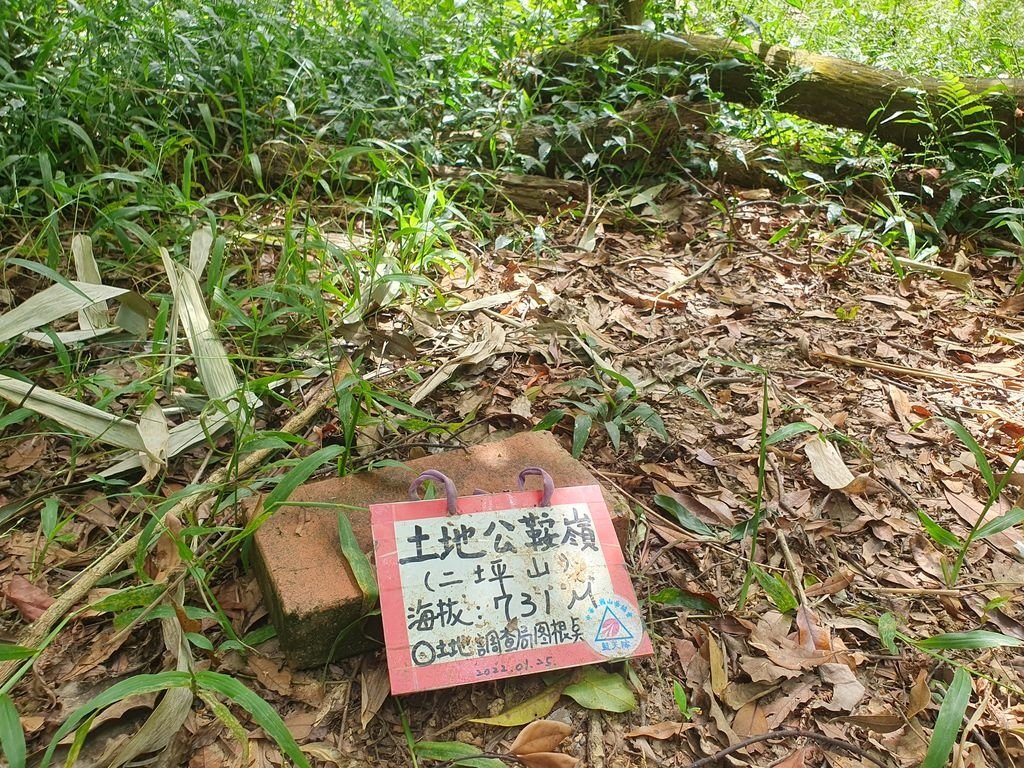 土地公鞍嶺
(二坪山)
海拔:731M
◎土地調查局图根点
2022.01.25.
藍天隊